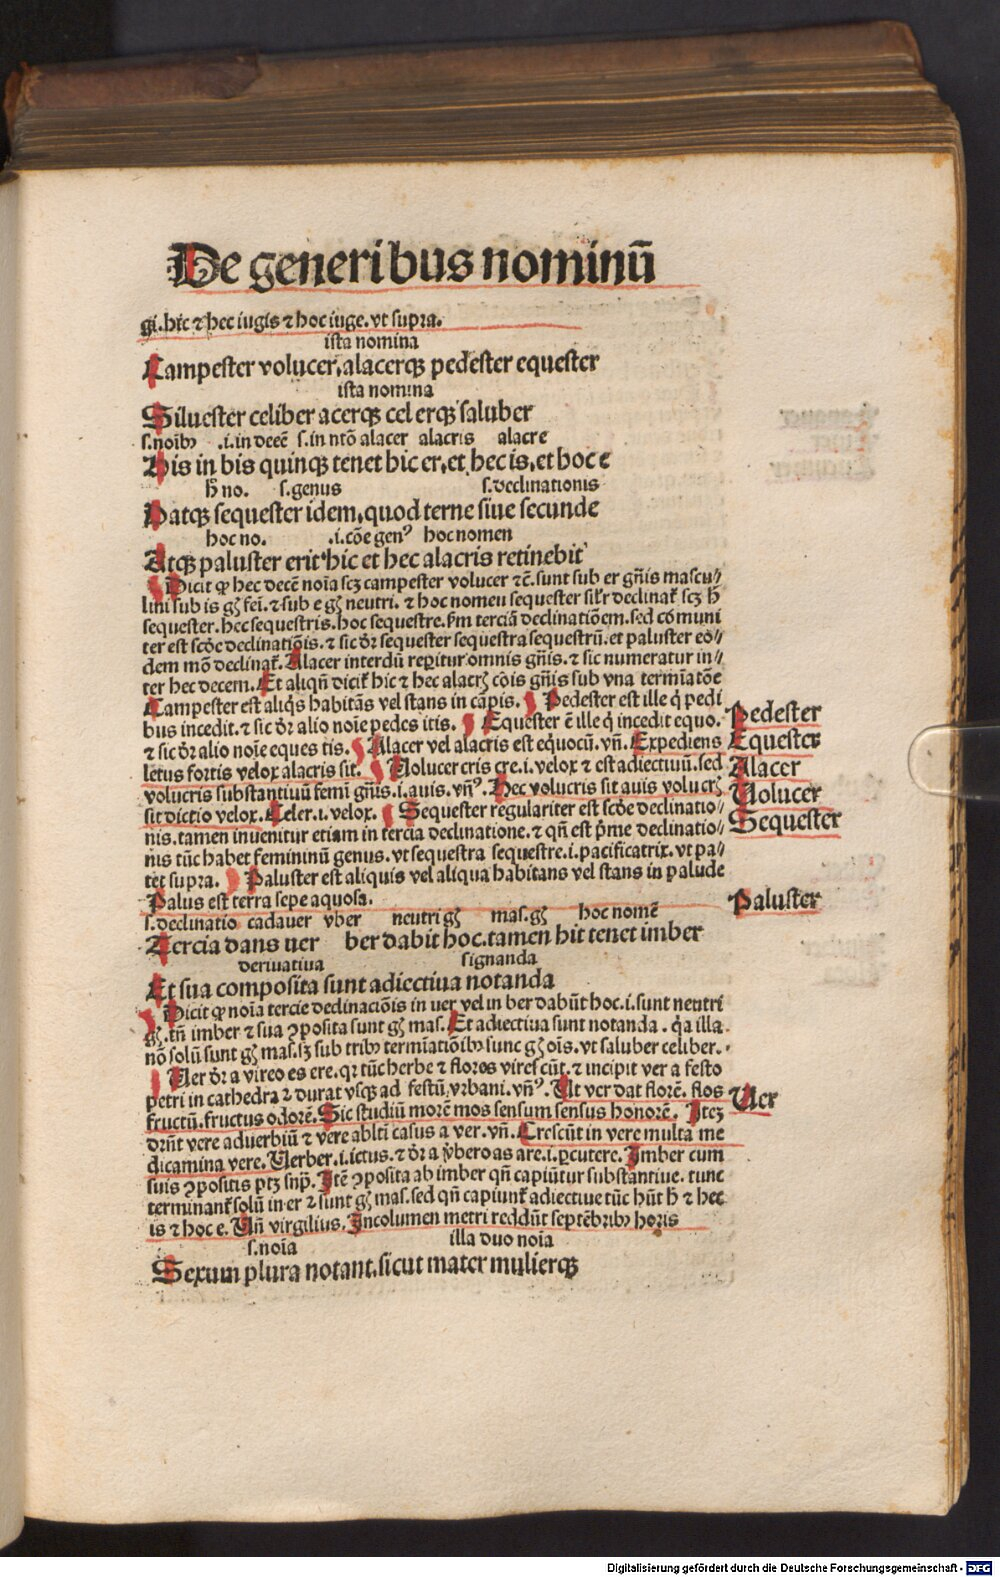 De generibus nominū
gi. hic ⁊ hec iugis ⁊ hoc iuge. vt supra.
ista nomina
Campester volucer, alacerqꝫ pedester equester
ista nomina
Siluester celiber acerqꝫ celerqꝫ saluber
s. noībꝰ .i. in deeē s. in ntō alacer alacris alacre
His in bis quinqꝫ tenet hic er, et hec is, et hoc e
h̄ no. s. genus s. declinationis
Datqꝫ sequester idem, quod terne siue secunde
hoc no. .i. cōe genꝰ hoc nomen
Atqꝫ paluster erit hic et hec alacris retinebit
Dicit ꝙ hec decē noīa scꝫ campester volucer ⁊c̄. sunt sub er gn̄is mascu//
lini sub is gꝫ fei. ⁊ sub e gꝫ neutri. ⁊ hoc nomen sequester silr̄ declinat̄ scꝫ h̄
sequester. hec sequestris. hoc sequestre. ꝑm terciā declinatiōem. sed cōmuni
ter est scd̄e declinatiōis. ⁊ sic dr̄ sequester sequestra sequestrū. et paluster eo//
dem mō declinat̄. Alacer interdū reꝑitur omnis gn̄is. ⁊ sic numeratur in//
ter hec decem. Et aliqn̄ dicit̄ hic ⁊ hec alacrꝫ cōis gn̄is sub vna termiātōe
Campester est aliqͥs habitās vel stans in cāpis. Pedester est ille qͥ pedi
bus incedit. ⁊ sic dr̄ alio noīe pedes itis. Equester ē ille qͥ incedit equo.
⁊ sic dr̄ alio noīe eques tis. Alacer vel alacris est eqͥuocū. vn̄. Expediens
letus fortis velox alacris sit. Uolucer cris cre. i. velox ⁊ est adiectiuū. sed
volucris substantiuū femī gn̄is. i. auis. vn̄ꝰ. Hec volucris sit auis volucrꝫ
sit dictio velox. Celer. i. velox. Sequester regulariter est scd̄e declinatio//
nis. tamen inuenitur etiam in tercia declinatione. ⁊ qn̄ est ꝑme declinatio//
nis tūc habet femininū genus. vt sequestra sequestre. i. pacificatrix. vt pa//
tet supra. Paluster est aliquis vel aliqua habitans vel stans in palude
Palus est terra sepe aquosa.
s. declinatio cadauer vber neutri gꝫ mas. gꝫ hoc nomē
Tercia dans uer ber dabit hoc. tamen hic tenet imber
deriuatiua signanda
Et sua composita sunt adiectiua notanda
Dicit ꝙ noīa tercie declinaciōis in uer vel in ber dabūt hoc. i. sunt neutri
gꝫ. tn̄ imber ⁊ sua ꝯposita sunt gꝫ mas. Et adiectiua sunt notanda. qͣ illa
nō solū sunt gꝫ mas. sꝫ sub tribꝰ termīatiōibꝰ sunc gꝫ oīs. vt saluber celiber.
Uer dr̄ a vireo es ere. qꝛ tūc herbe ⁊ flores virescūt. ⁊ incipit ver a festo
petri in cathedra ⁊ durat vsqꝫ ad festū vrbani. vn̄ꝰ. Ut ver dat florē. flos
fructū. fructus odorē. Sic studiū morē mos sensum sensus honorē. Itcꝫ
dr̄nt vere aduerbiū ⁊ vere ablti casus a ver. vn̄. Crescūt in vere multa me
dicamina vere. Uerber. i. ictus. ⁊ dr̄ a ꝟberoas are. i. ꝑcutere. Imber cum
suis ꝯpositis ptꝫ snp̄. Itē ꝯposita ab imber qn̄ capiūtur substantiue. tunc
terminant̄ solū in er ⁊ sunt gꝫ mas. sed qn̄ capiunt̄ adiectiue tūc hn̄t h̄ ⁊ hec
is ⁊ hoc e. Un̄ virgilius. Incolumen metri reddūt septēbribꝰ horis
s. noīa illa duo noīa
Sexum plura notant. sicut mater mulierqꝫ
Pedester
Equester
Alacer
Uolucer
Sequester
Paluster
Uer
Digitalisierung gefördert durch die Deutsche Forschungsgemeinschaft - DFG